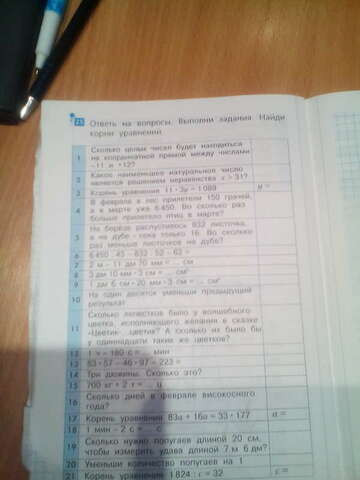 25 Ответь на вопросы. Выполни задания. Найди
корни уравнений.
1 Сколько целых чисел будет находиться
на координатной прямой между числами
-11 и +12?
2 Какое наименьшее натуральное число
является решением неравенства x > 31?
3 Корень уравнения 11 · 3y = 1089 y =
4 В феврале в лес прилетели 150 грачей,
а в марте уже 6450. Во сколько раз
больше прилетело птиц в марте?
5 На берёзе распустилось 832 листочка,
а на дубе пока только 16. Во сколько
раз меньше листочков на дубе?
6 6450 : 45 - 832 : 52 - 62 =
7 2 м - 11 дм 70 мм = ... см
8 3 дм 10 мм · 3 см = ... см²
9 1 дм 6 см · 20 мм · 3 см = ... см³
10 На один десяток уменьши предыдущий
результат
11 Сколько лепестков было у волшебного
цветка, исполняющего желания в сказке
«Цветик- цветик»? А сколько их было бы
у одиннадцати таких же цветков?
12 1 ч - 180 с = ... мин
13 83 · 57 - 46 · 97 - 223 =
14 Три дюжины. Сколько это?
15 700 кг + 2 т = ... ц
16 Сколько дней в феврале високосного
года?
17 Корень уравнения 83a + 16a = 33 · 177 a =
18 1 мин - 2 с = ... с
19 Сколько нужно попугаев длиной 20 см,
чтобы измерить удава длиной 7 м 6 дм?
20 Уменьши количество попугаев на 1
21 Корень уравнения 1824 : c = 32 c =